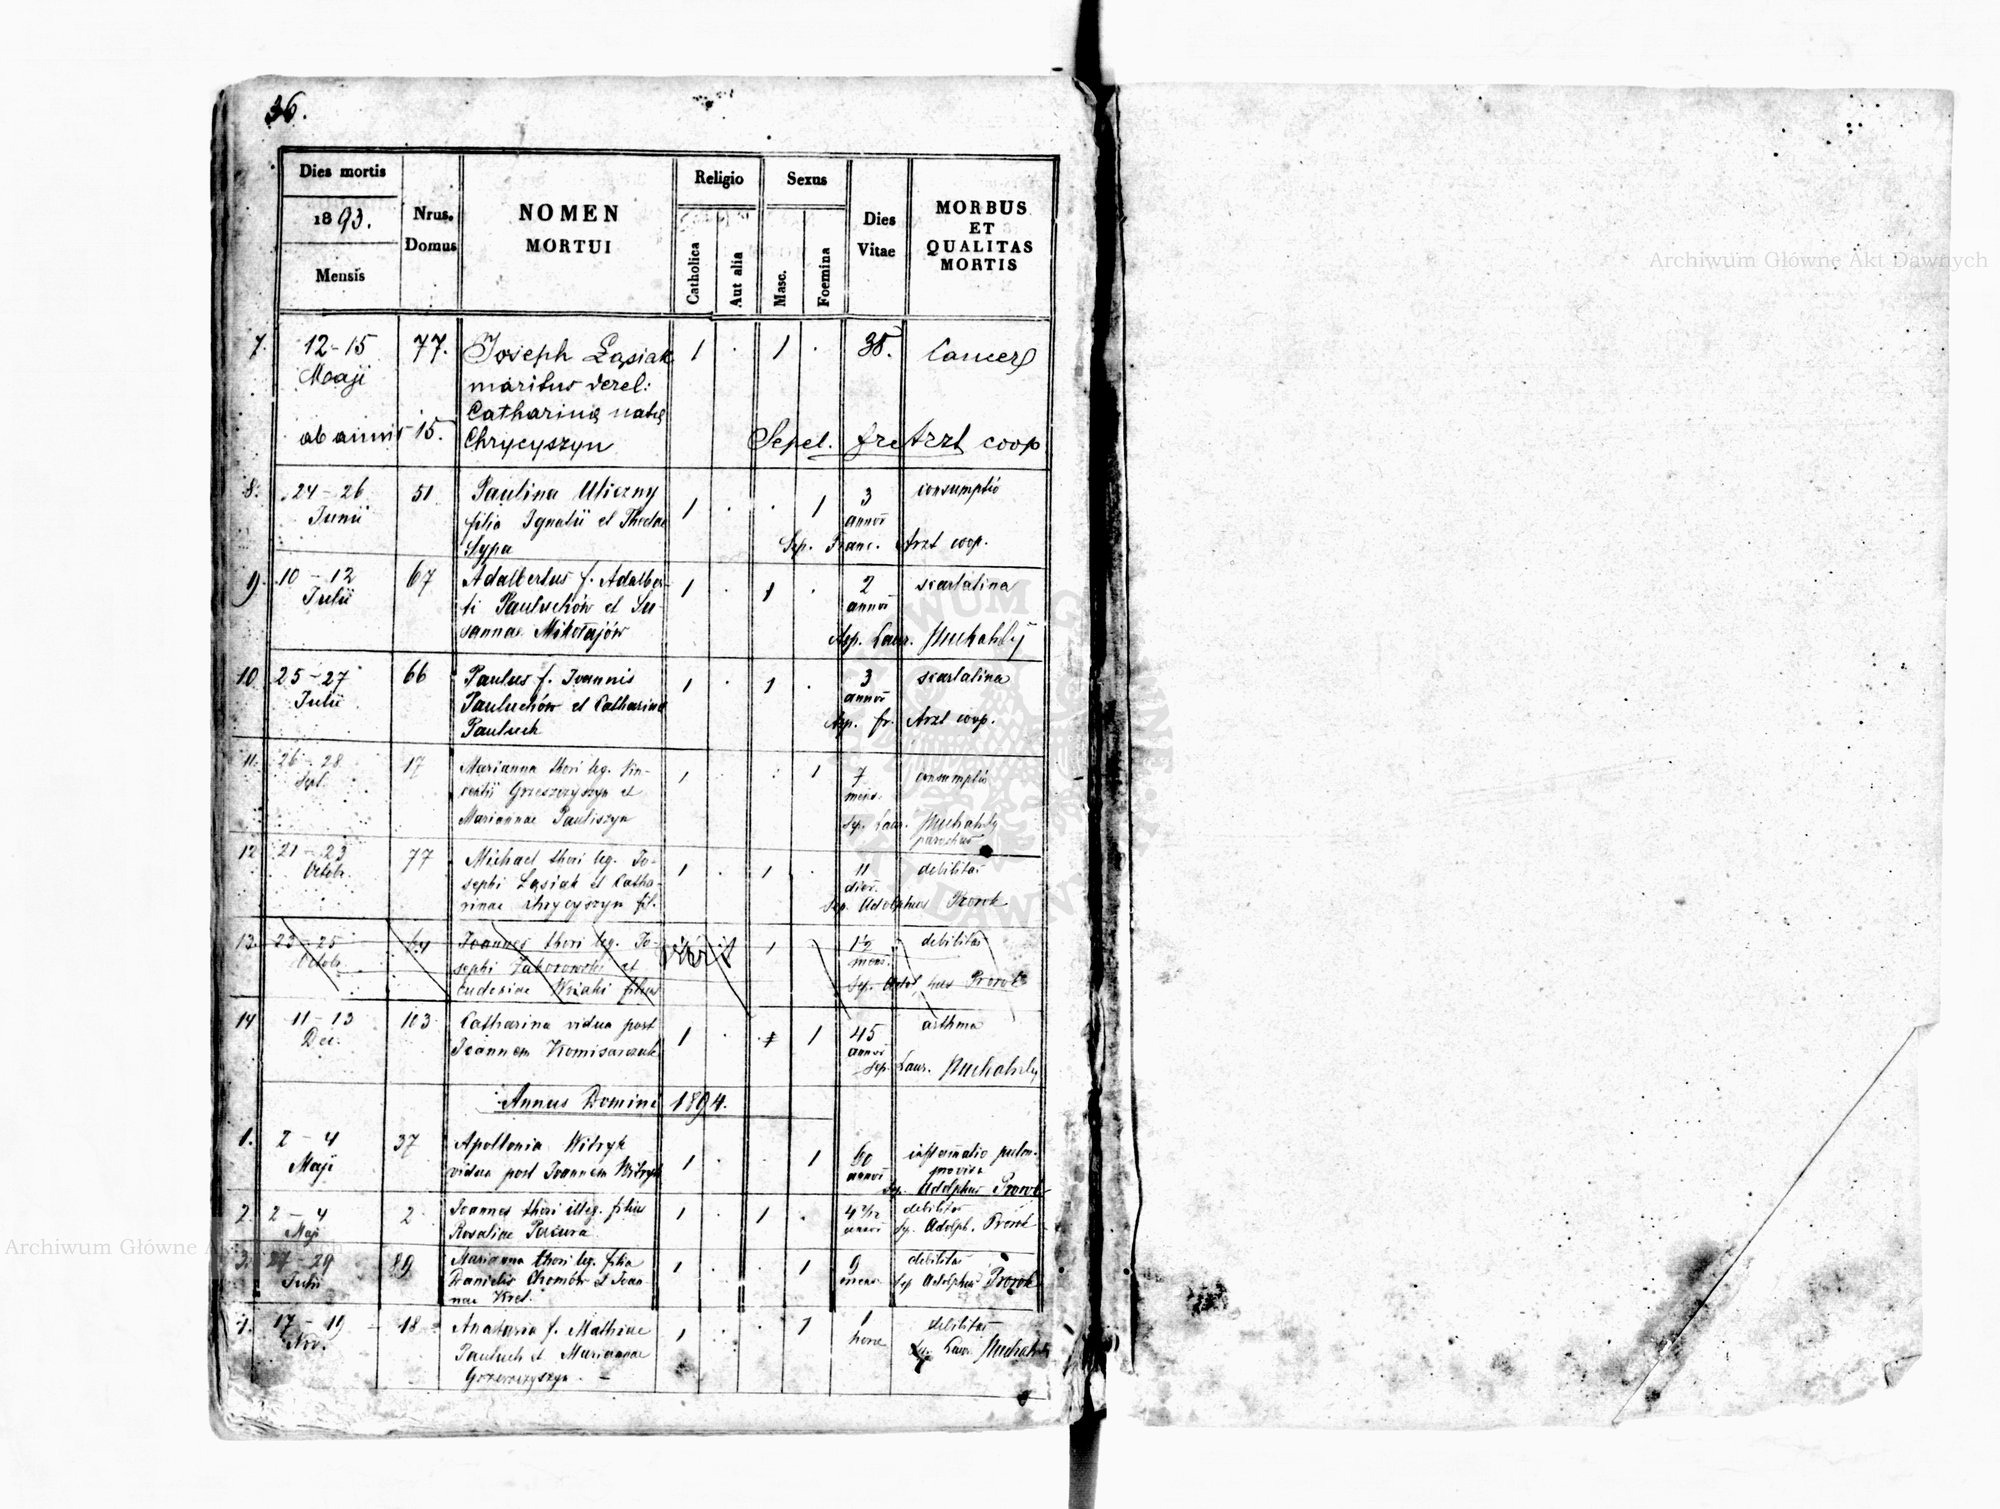 36.
Dies mortis
1893.
Mensis
Nrus.
Domus
NOMEN
MORTUI
Religio
Catholica
Aut alia
Sexus
Masc.
Foemina
Dies
Vitae
MORBUS
ET
QUALITAS
MORTIS
7. 12-15 77. Joseph Łąsiak 1 . 1 . 38. Cancer
Maji maritus derel:
Catharinę natę
ab annis 15. Chrycyszyn Sepel. fr. Arzt coop
8. 24-26 51 Paulina Uliczny 1 . . 1 3 consumptio
Junii filia Ignatii et Theclae annor
Sypa Sep. Franc. Arzt coop.
9. 10-12 67 Adalbertus f. Adalber- 1 . 1 . 2 scarlatina
Julii ti Pauluchów et Su- annor
sannae Mikołajów Sep. Laur.
10 25-27 66 Paulus f. Joannis 1 . 1 . 3 scarlatina
Julii Pauluchów et Catharinae annor
Pauluch Sep. fr. Arzt coop.
11. 26-28 17 Marianna thori leg. Vin- 1 . . 1 7 consumptio
Sept. centii Grzeszczyszyn et mens.
Mariannae Pauliszyn Sep. Laur.
parochus
12 21-23 77 Michael thori leg. Jo- 1 . 1 . 11 debilitas
Octob. sephi Łąsiak et Catha- dier.
rinae Chrycyszyn fil. Sep. Adolphus Prorok
13. 23-25 Joannes thori leg. Jo- vivit 1 1/2 debilitas
Octob. sephi Zaborowski et mens.
Eudosiae filius Sep. Adolphus Prorok
14 11-13 103 Catharina vidua post 1 . . 1 45 asthma
Dec. Joannem Komisarczuk annor
Sep. Laur.
Annus Domini 1894.
1. 2-4 37 Apollonia Witryk 1 . . 1 60 inflamatio pulm.
Maji vidua post Joannem Witryk annor provisa
Sep. Adolphus Prorok
2. 2-4 2 Joannes thori illeg. filius 1 . 1 . 4 2/12 debilitas
Maji Rosaliae Pacura annor Sep. Adolph. Prorok
3. 27-29 89 Marianna thori leg. filia 1 . . 1 9 debilitas
Julii Danielis Chomów et Joan- mens. Sep Adolphus Prorok
nae Kret.
4. 17-19 18 Anastasia f. Mathiae 1 . . 1 1 debilitas
Nov. Pauluch et Mariannae hora Sep. Laur.
Grzeszczyszyn.
Archiwum Główne Akt Dawnych
Archiwum Główne Akt Dawnych